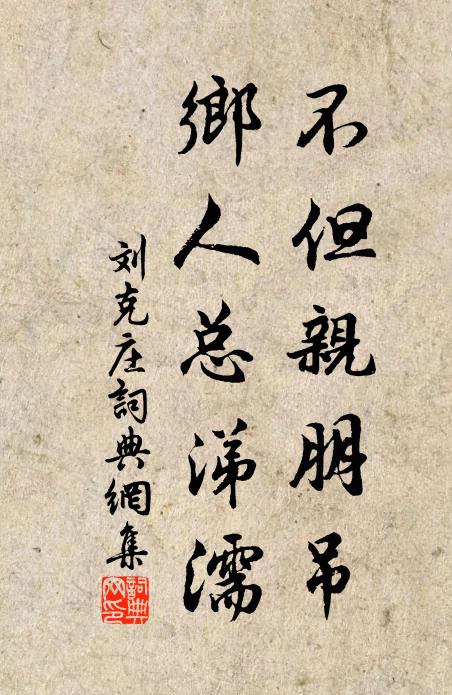 不但親朋吊
鄉人总涕濡
刘克庄詞典網集
詞典
网印